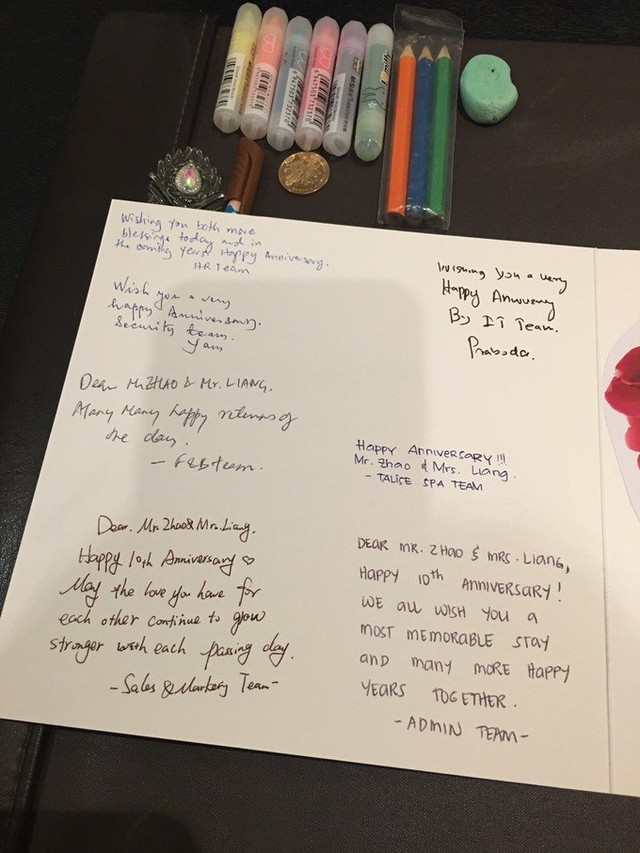 Wishing you both more
blessings today and in
the coming years Happy Anniversary.
HR Team
Wish you a very
happy Anniversary.
Security team.
Yam
Dear Mr ZHAO & Mr. LIANG.
Many Many happy returns of
the day.
- F&B team.
Dear. Mr. Zhao & Mrs. Liang.
Happy 10th Anniversary ♡
May the love you have for
each other continue to grow
stronger with each passing day.
- Sales & Marketing Team -
Wishing you a very
Happy Anniversary
By IT Team.
Praboda.
HAPPY ANNIVERSARY!!!
Mr. Zhao & Mrs. Liang.
- TALISE SPA TEAM
DEAR MR. ZHAO & MRS. LIANG,
HAPPY 10th ANNIVERSARY!
WE ALL WISH YOU A
MOST MEMORABLE STAY
AND MANY MORE HAPPY
YEARS TOGETHER.
- ADMIN TEAM -